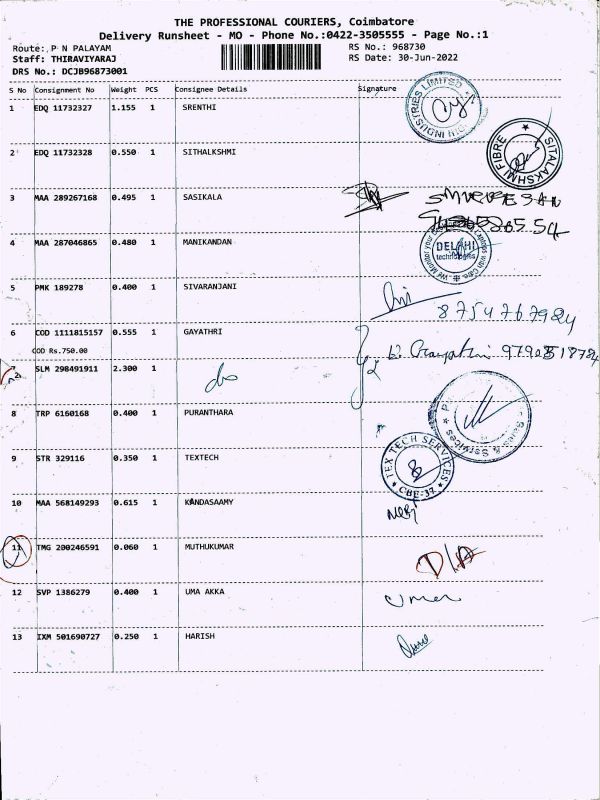 THE PROFESSIONAL COURIERS, Coimbatore
Delivery Runsheet - MO - Phone No.:0422-3505555 - Page No.:1
Route: P N PALAYAM RS No.: 968730
Staff: THIRAVIYARAJ RS Date: 30-Jun-2022
DRS No.: DCJB96873001
S No Consignment No Weight PCS Consignee Details Signature
1 EDQ 11732327 1.155 1 SRENTHI
2 EDQ 11732328 0.550 1 SITHALKSHMI
SITALAKSHMI FIBRE
3 MAA 289267168 0.495 1 SASIKALA
4 MAA 287046865 0.480 1 MANIKANDAN
DELPHI
technologies
5 PMK 189278 0.400 1 SIVARANJANI
8754767984
6 COD 1111815157 0.555 1 GAYATHRI
COD Rs.750.00
7 SLM 298491911 2.300 1 do
8 TRP 6160168 0.400 1 PURANTHARA
Sales & Services
9 STR 329116 0.350 1 TEXTECH
TEX TECH SERVICES
CBE-37
10 MAA 568149293 0.615 1 KANDASAAMY
11 TMG 200246591 0.060 1 MUTHUKUMAR
D/A
12 SVP 1386279 0.400 1 UMA AKKA
Uma
13 IXM 501690727 0.250 1 HARISH